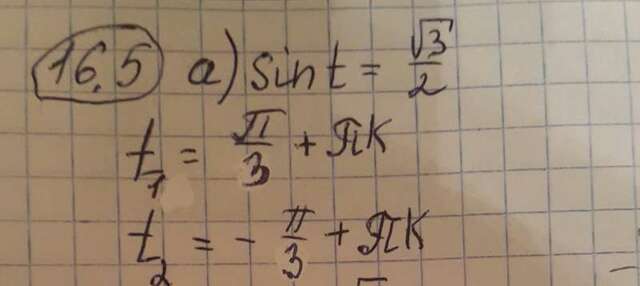 16.5 a) sin t = √3/2
t₁ = π/3 + πk
t₂ = - π/3 + πk